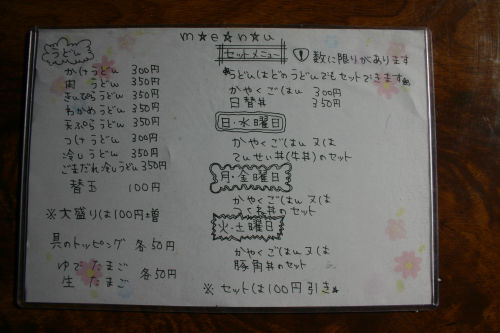 m☆e☆n☆u
うどん
かけうどん 300円
肉うどん 350円
きんぴらうどん 350円
わかめうどん 350円
天ぷらうどん 350円
つけうどん 300円
冷しうどん 350円
ごまだれ冷しうどん 350円
替玉 100円
※大盛りは100円増
具のトッピング 各50円
ゆでたまご
生たまご 各50円
セットメニュー
! 数に限りがあります
うどんはどのうどんでもセットできます
かやくごはん 300円
日替丼 350円
日・水曜日
かやくごはん 又は
てっせい丼(牛丼)のセット
月・金曜日
かやくごはん 又は
丼のセット
火・土曜日
かやくごはん 又は
豚角丼のセット
※セットは100円引き